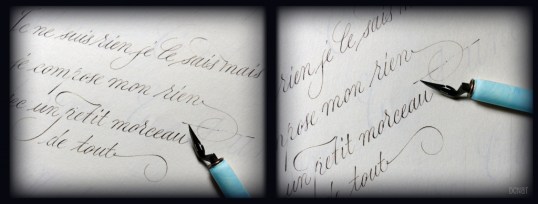 Je ne suis rien je le sais mais
je compose mon rien
avec un petit morceau
de tout
rien je le sais m
mpose mon rien
un petit morceau
de tout